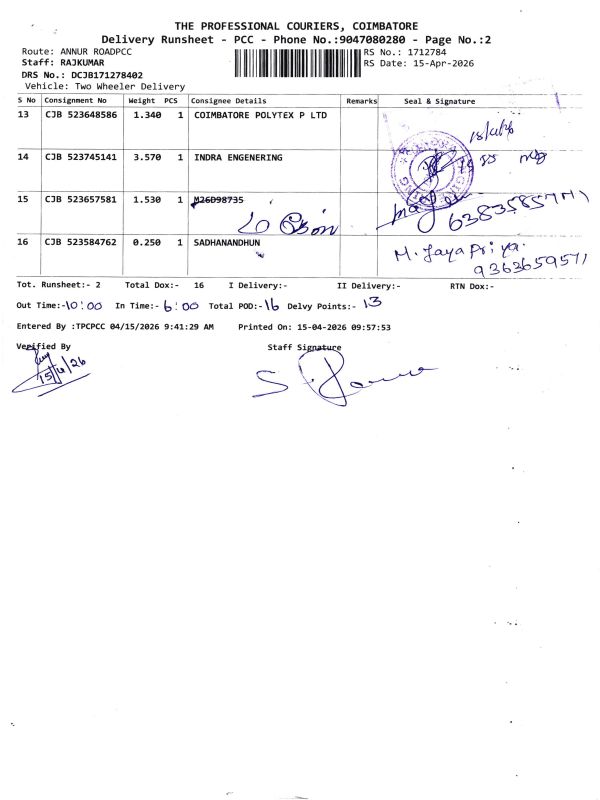 THE PROFESSIONAL COURIERS, COIMBATORE
Delivery Runsheet - PCC - Phone No.:9047080280 - Page No.:2
Route: ANNUR ROADPCC
RS No.: 1712784
Staff: RAJKUMAR
RS Date: 15-Apr-2026
DRS No.: DCJB171278402
Vehicle: Two Wheeler Delivery
S No Consignment No Weight PCS Consignee Details Remarks Seal & Signature
13 CJB 523648586 1.340 1 COIMBATORE POLYTEX P LTD
14 CJB 523745141 3.570 1 INDRA ENGENERING
15 CJB 523657581 1.530 1 M26D98735
16 CJB 523584762 0.250 1 SADHANANDHUN
M. Jaya Pri ya.
9363659571
Tot. Runsheet:- 2 Total Dox:- 16 I Delivery:- II Delivery:- RTN Dox:-
Out Time:-10:00 In Time:- 6:00 Total POD:-16 Delvy Points:- 13
Entered By :TPCPCC 04/15/2026 9:41:29 AM Printed On: 15-04-2026 09:57:53
Verified By Staff Signature
15/4/26